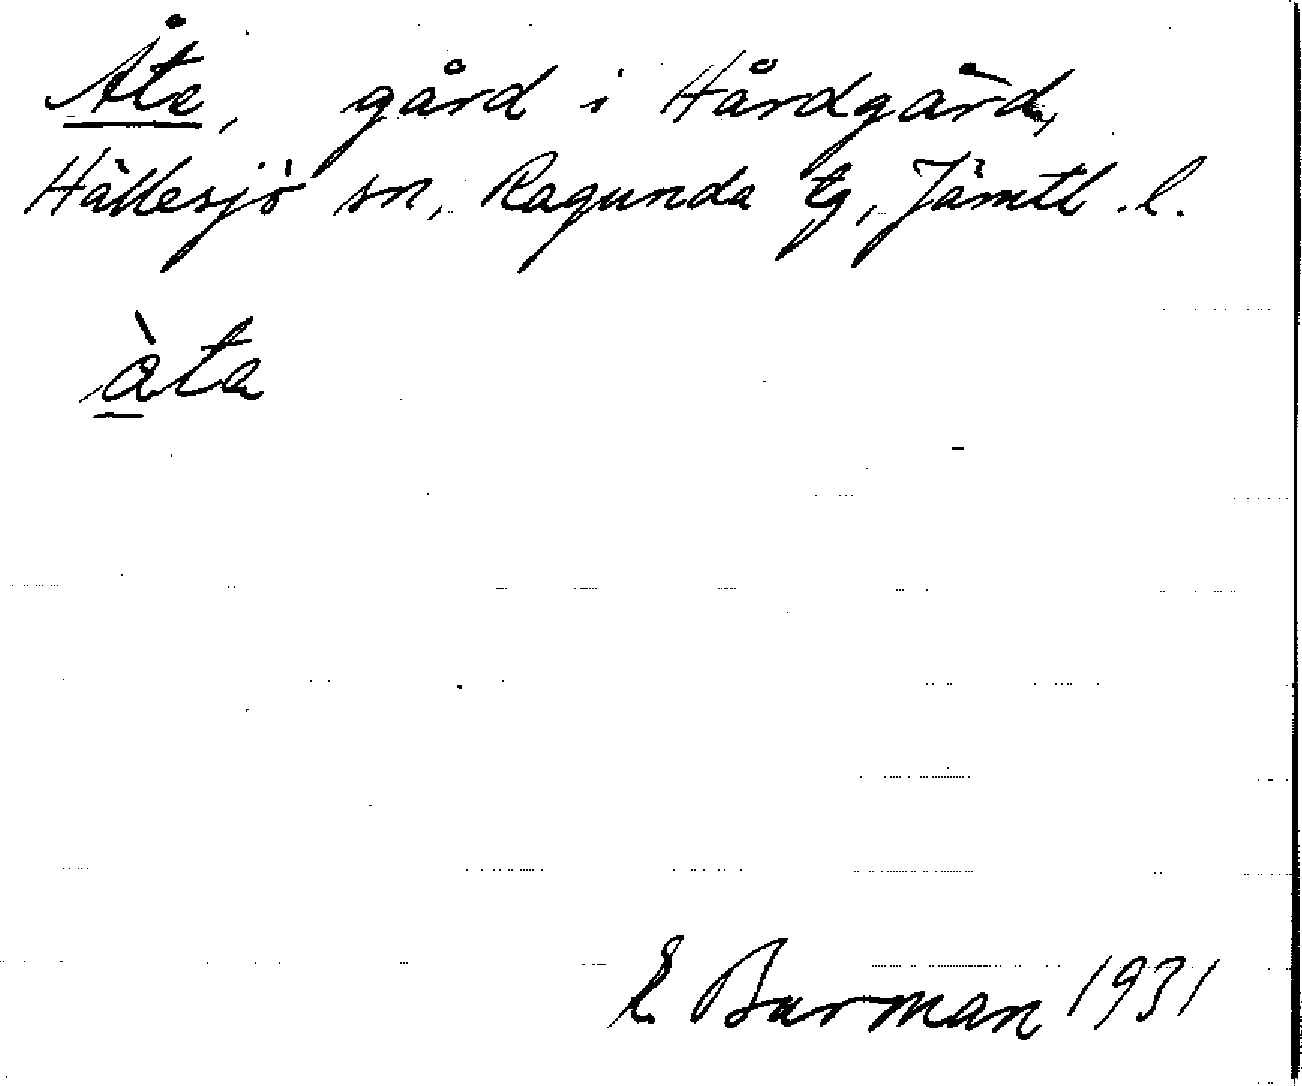 Åte, gård i Hårdgård,
Hällesjö sn, Ragunda tg, Jämtl. l.
àta
E Burman 1931